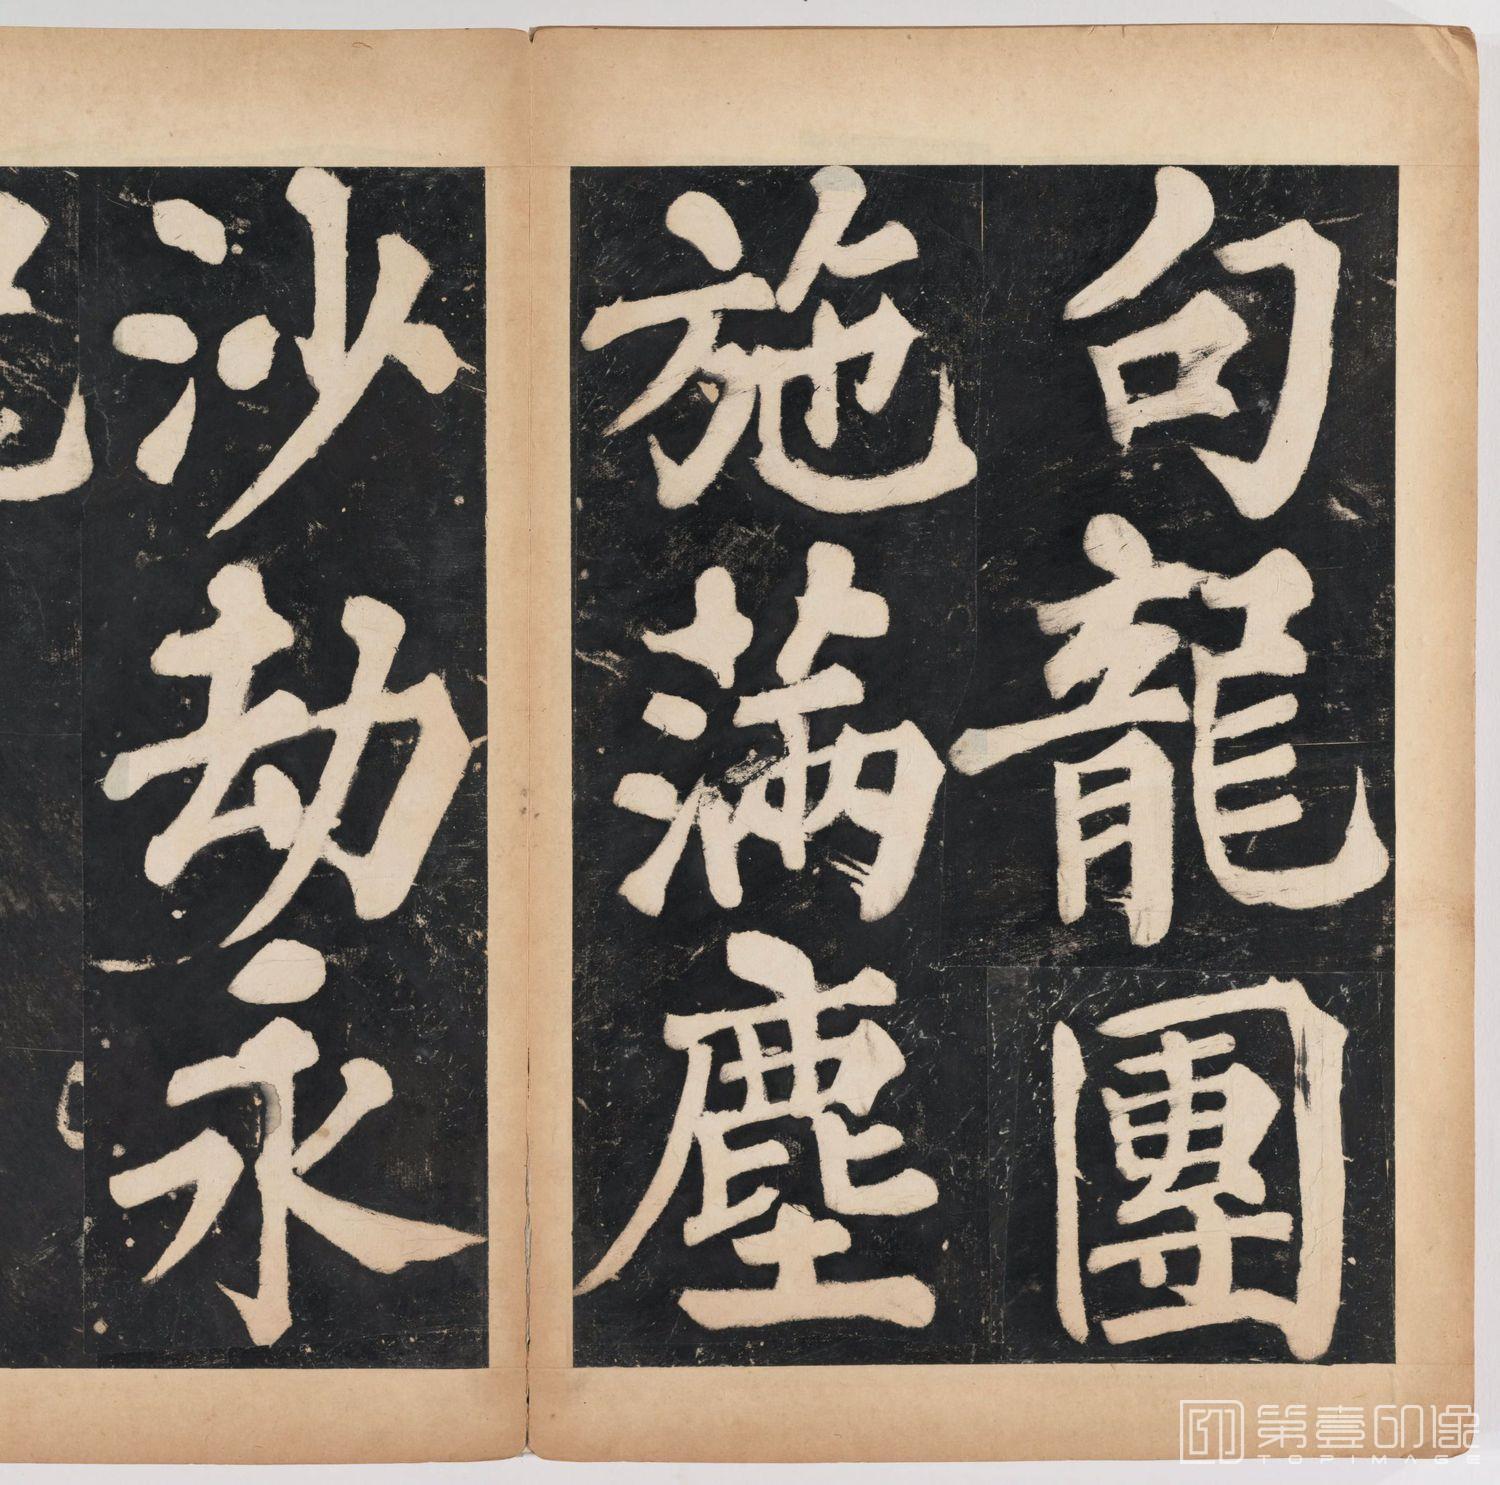 句龍團
施滿塵
沙劫永
第壹印像
TOPIMAGE